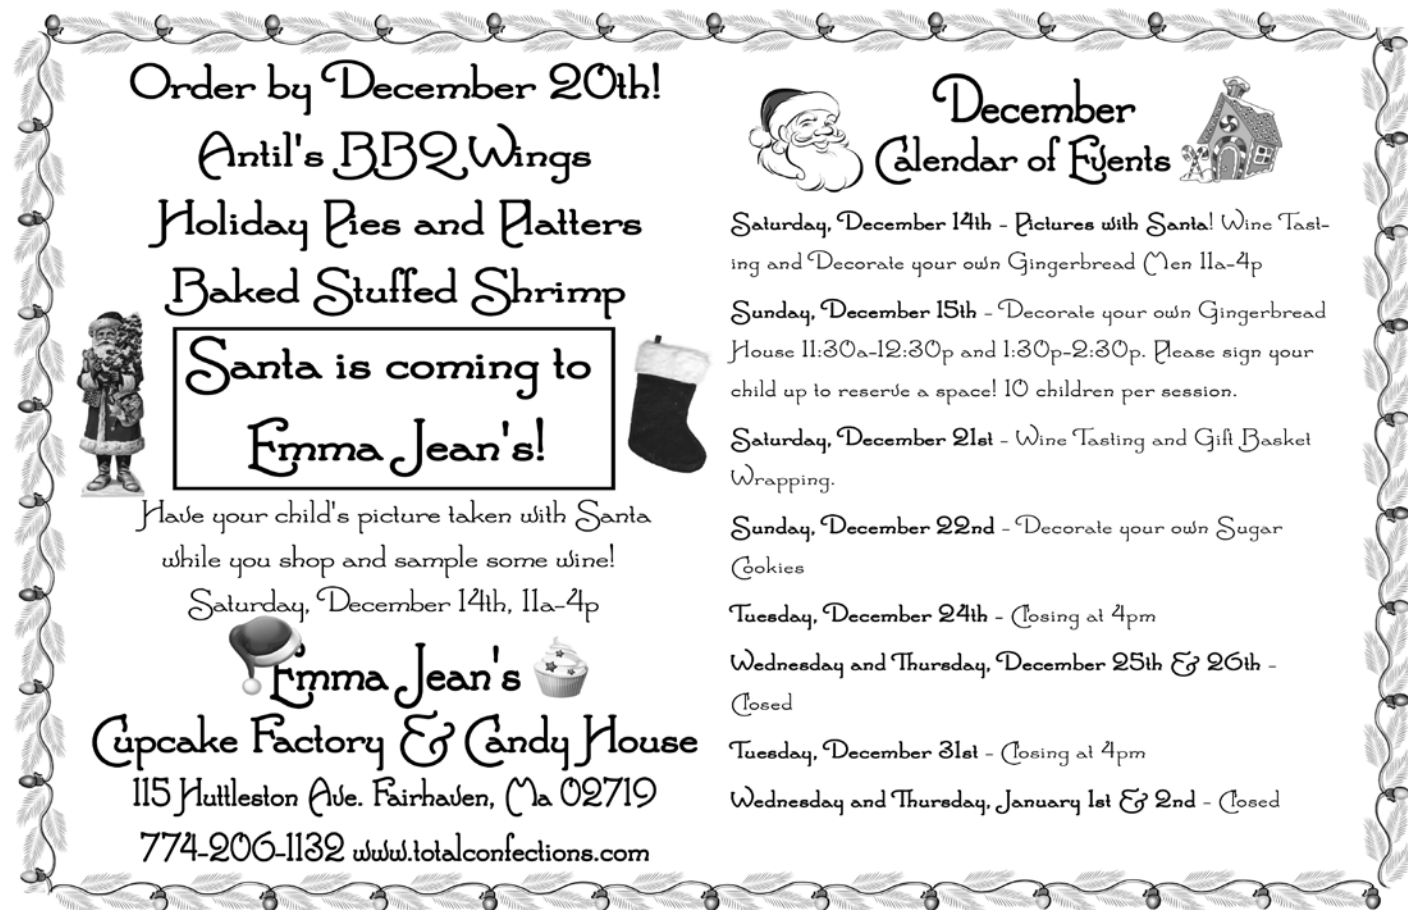 Order by December 20th!
Antil's BBQ Wings
Holiday Pies and Platters
Baked Stuffed Shrimp
Santa is coming to
Emma Jean's!
Have your child's picture taken with Santa
while you shop and sample some wine!
Saturday, December 14th, 11a-4p
Emma Jean's
Cupcake Factory & Candy House
115 Huttleston Ave. Fairhaven, Ma 02719
774-206-1132 www.totalconfections.com
December
Calendar of Events
Saturday, December 14th - Pictures with Santa! Wine Tast-
ing and Decorate your own Gingerbread Men 11a-4p
Sunday, December 15th - Decorate your own Gingerbread
House 11:30a-12:30p and 1:30p-2:30p. Please sign your
child up to reserve a space! 10 children per session.
Saturday, December 21st - Wine Tasting and Gift Basket
Wrapping.
Sunday, December 22nd - Decorate your own Sugar
Cookies
Tuesday, December 24th - Closing at 4pm
Wednesday and Thursday, December 25th & 26th -
Closed
Tuesday, December 31st - Closing at 4pm
Wednesday and Thursday, January 1st & 2nd - Closed